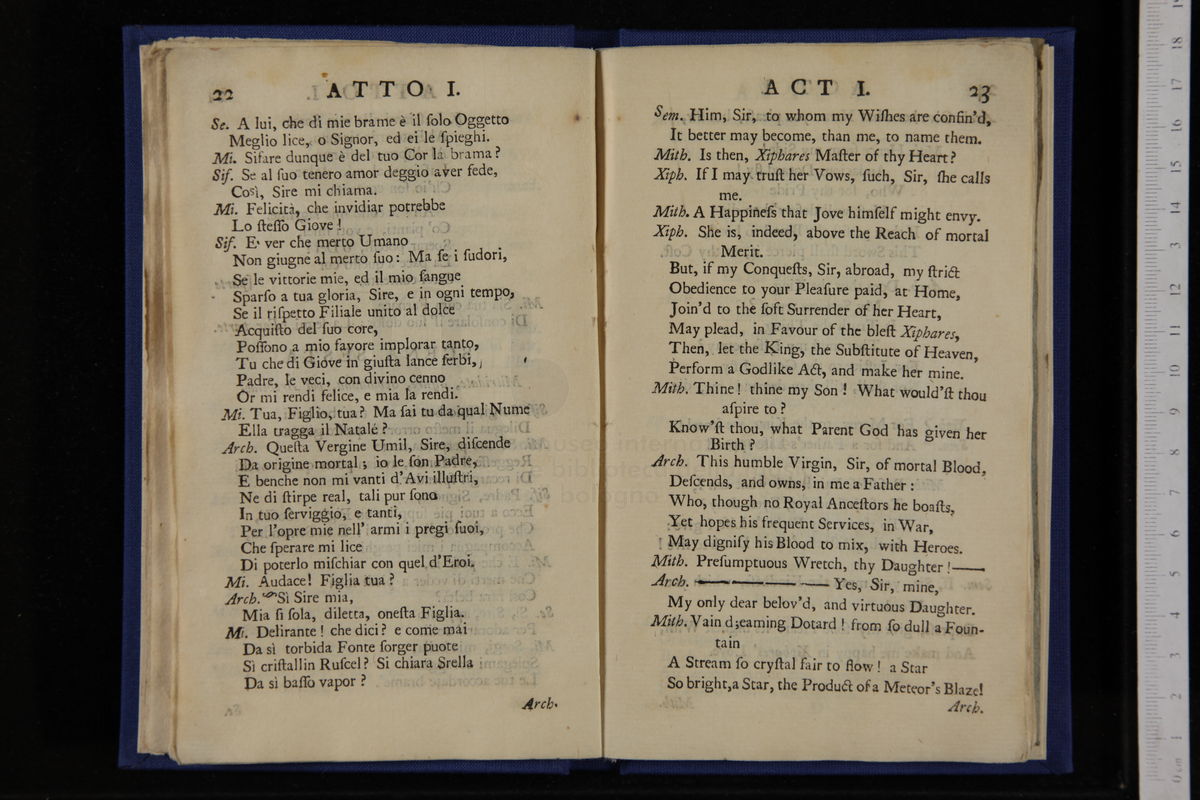 22
ATTO I.
Se. A lui, che di mie brame è il ſolo Oggetto
Meglio lice, o Signor, ed ei le ſpieghi.
Mi. Sifare dunque è del tuo Cor la brama?
Sif. Se al ſuo tenero amor deggio aver fede,
Così, Sire mi chiama.
Mi. Felicità, che invidiar potrebbe
Lo ſteſſo Giove!
Sif. E' ver che merto Umano
Non giugne al merto ſuo: Ma ſe i ſudori,
Se le vittorie mie, ed il mio ſangue
Sparſo a tua gloria, Sire, e in ogni tempo,
Se il riſpetto Filiale unito al dolce
Acquiſto del ſuo core,
Poſſono a mio favore implorar tanto,
Tu che di Giove in giuſta lance ſerbi,
Padre, le veci, con divino cenno
Or mi rendi felice, e mia la rendi.
Mi. Tua, Figlio, tua? Ma ſai tu da qual Nume
Ella tragga il Natale?
Arch. Queſta Vergine Umil, Sire, diſcende
Da origine mortal; io le ſon Padre,
E benche non mi vanti d'Avi illuſtri,
Ne di ſtirpe real, tali pur ſono
In tuo ſerviggio, e tanti,
Per l'opre mie nell' armi i pregi ſuoi,
Che ſperare mi lice
Di poterlo miſchiar con quel d'Eroi.
Mi. Audace! Figlia tua?
Arch. Sì Sire mia,
Mia sì ſola, diletta, oneſta Figlia.
Mi. Delirante! che dici? e come mai
Da sì torbida Fonte ſorger puote
Sì criſtallin Ruſcel? Si chiara Srella
Da sì baſſo vapor?
Arch.
ACT I.
23
Sem. Him, Sir, to whom my Wiſhes are confin'd,
It better may become, than me, to name them.
Mith. Is then, Xiphares Maſter of thy Heart?
Xiph. If I may truſt her Vows, ſuch, Sir, ſhe calls
me.
Mith. A Happineſs that Jove himſelf might envy.
Xiph. She is, indeed, above the Reach of mortal
Merit.
But, if my Conqueſts, Sir, abroad, my ſtrict
Obedience to your Pleaſure paid, at Home,
Join'd to the ſoft Surrender of her Heart,
May plead, in Favour of the bleſt Xiphares,
Then, let the King, the Subſtitute of Heaven,
Perform a Godlike Act, and make her mine.
Mith. Thine! thine my Son! What would'ſt thou
aſpire to?
Know'ſt thou, what Parent God has given her
Birth?
Arch. This humble Virgin, Sir, of mortal Blood,
Deſcends, and owns, in me a Father:
Who, though no Royal Anceſtors he boaſts,
Yet hopes his frequent Services, in War,
May dignify his Blood to mix, with Heroes.
Mith. Preſumptuous Wretch, thy Daughter!——
Arch. —— —— —— Yes, Sir, mine,
My only dear belov'd, and virtuous Daughter.
Mith. Vain d;eaming Dotard! from ſo dull a Foun-
tain
A Stream ſo cryſtal fair to flow! a Star
So bright, a Star, the Product of a Meteor's Blaze!
Arch.